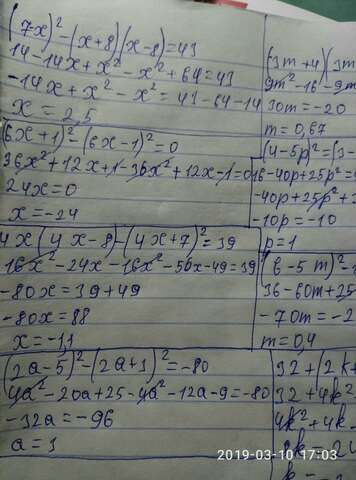 (7x)²-(x+8)(x-8)=43
14-14x+x²-x²+64=43
-14x+x²-x²=43-64-14
x=2,5
(6x+1)²-(6x-1)²=0
36x²+12x+1-36x²+12x-1=0
24x=0
x=-24
4x(4x-8)-(4x+7)²=39
16x²-24x-16x²-56x-49=39
-80x=39+49
-80x=88
x=-11
(2a-5)²-(2a+3)²=-80
4a²-20a+25-4a²-12a-9=-80
-32a=-96
a=3
(3m+4)(3m
9m²-16-9m
30m=-20
m=0,67
(4-5p)²=(3-
16-40p+25p²=
-40p+25p²+
-10p=-10
p=1
(6-5m)²-
36-60m+25
-70m=-2
m=0,4
32+(2k+
32+4k²
4k²+4k-
2019-03-10 17:03